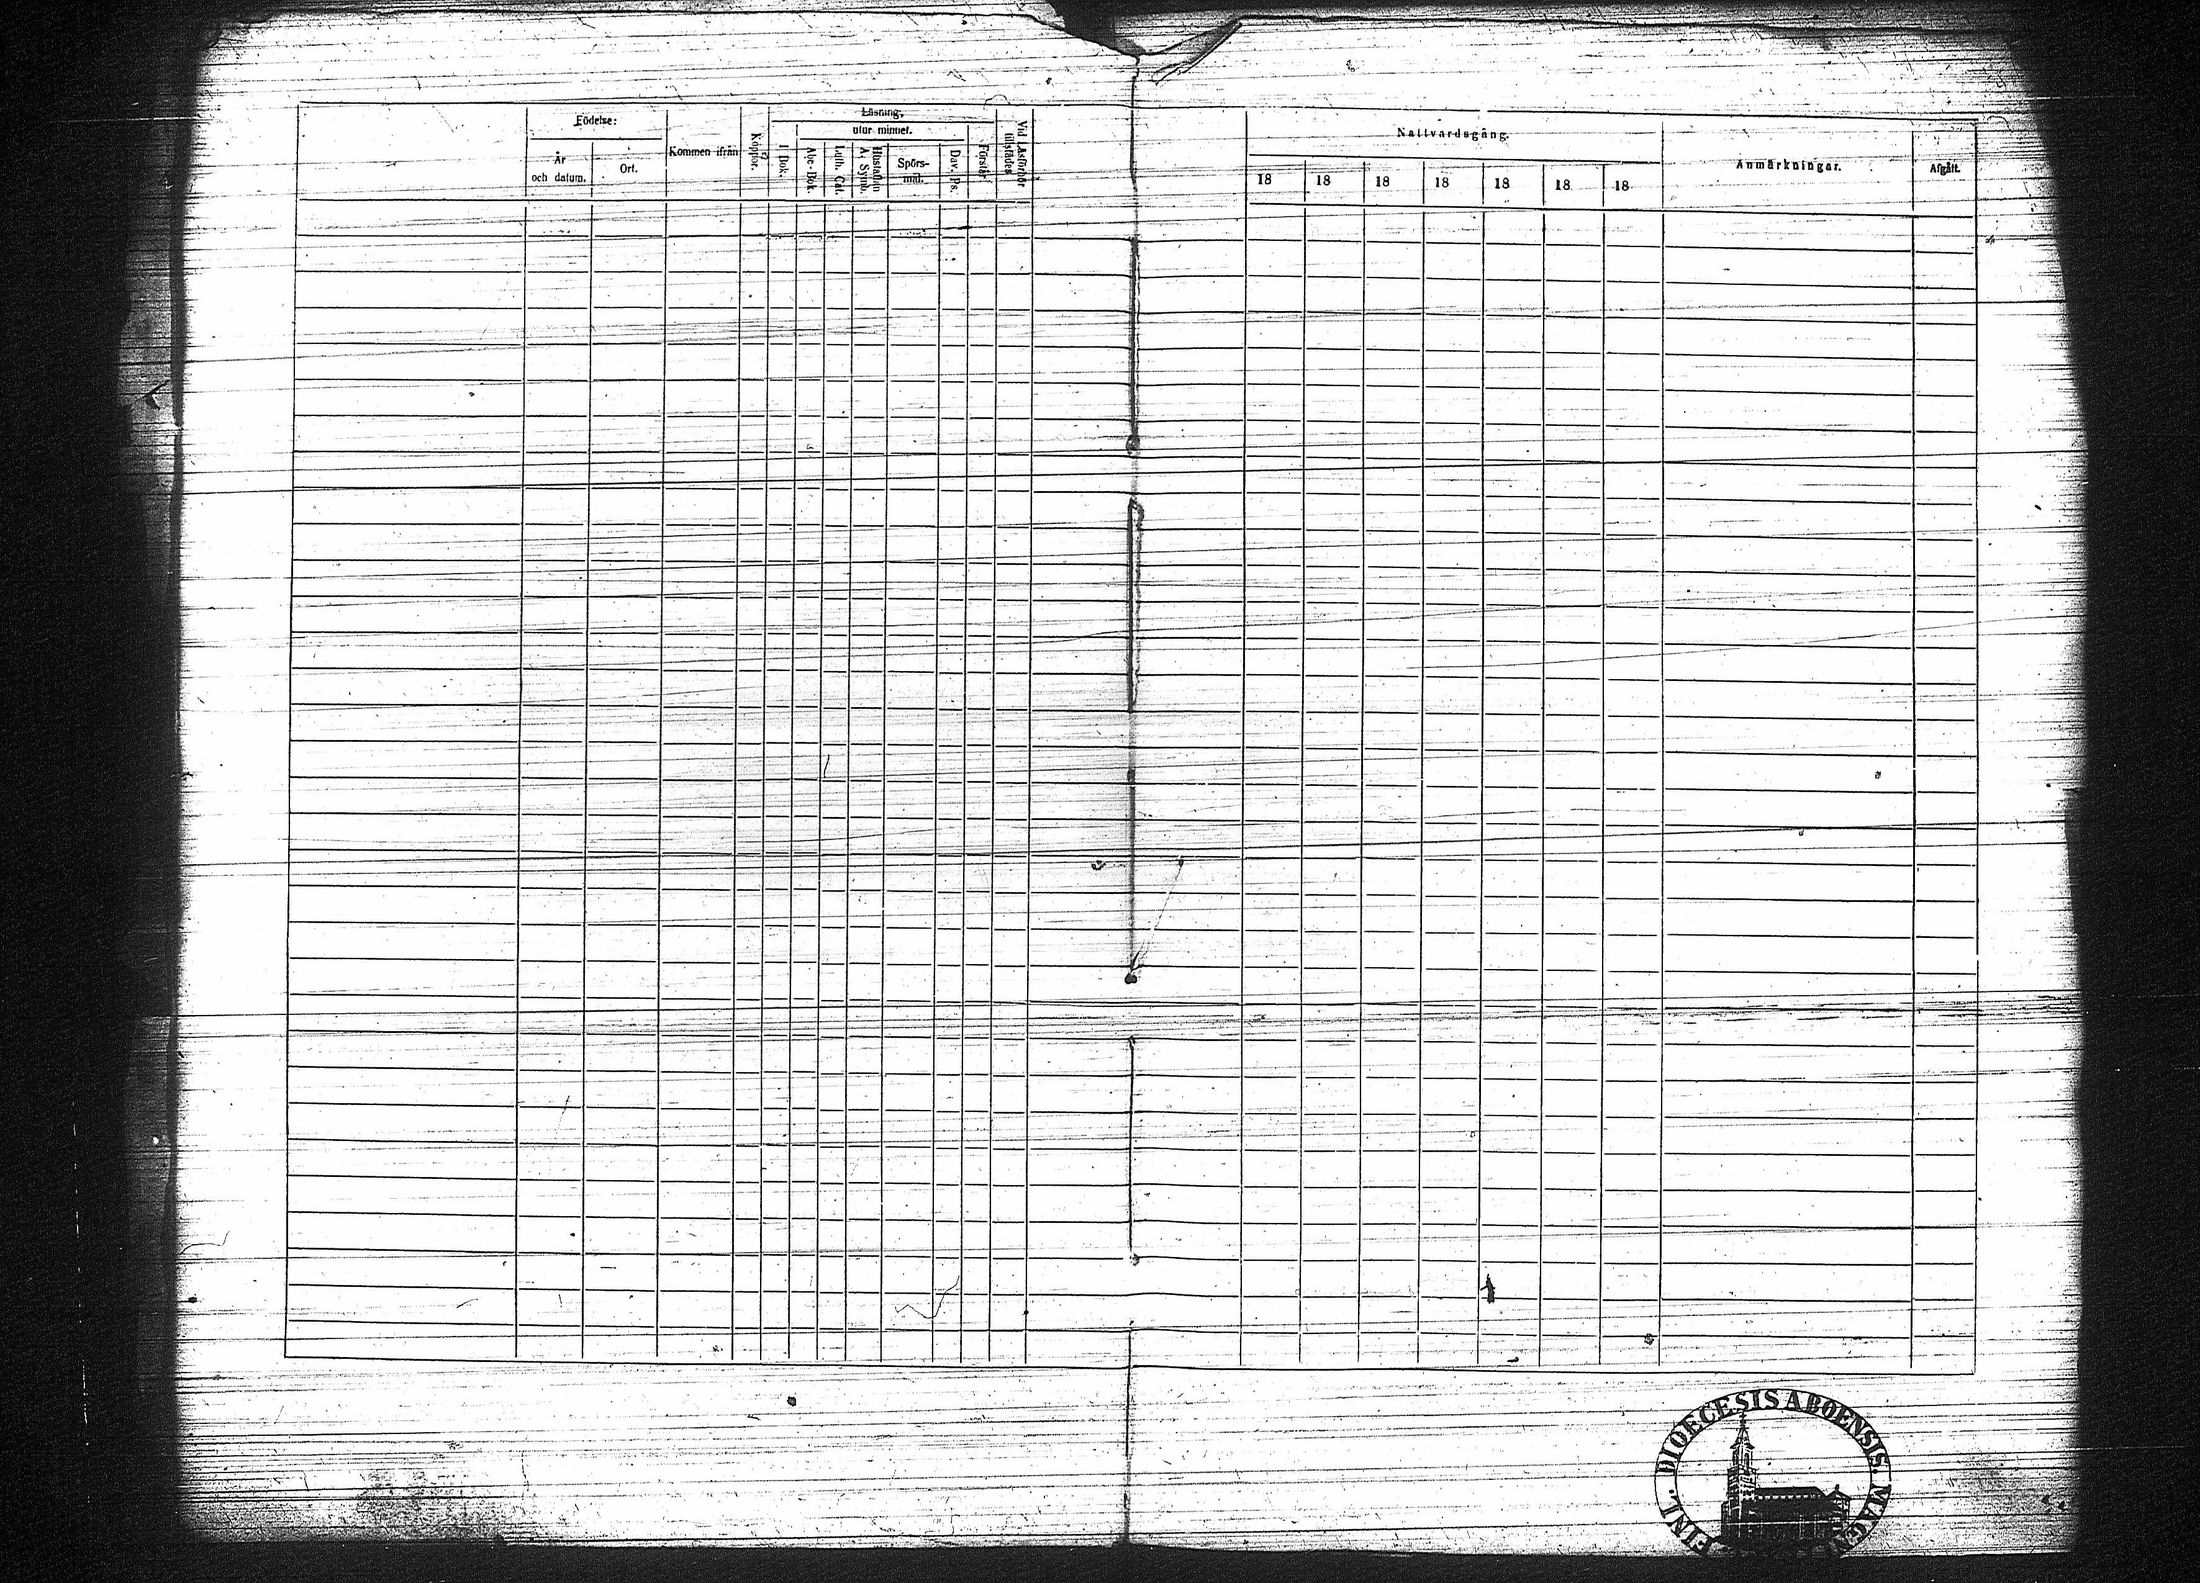 Födelse:
År
och datum.
Ort.
Kommen ifrån
Koppor.
Läsning,
utur minnet.
I Bok.
Abc-Bok.
Luth. Cat.
Hustaflan
A. Symb.
Spörs-
mål.
Dav. Ps.
Förstår
Vid Läsförhör
tillstädes
Nattvardsgång.
18 18 18 18 18 18 18
Anmärkningar.
Afgått.
FINL. DIOECESIS ABOENSIS. MAGNI